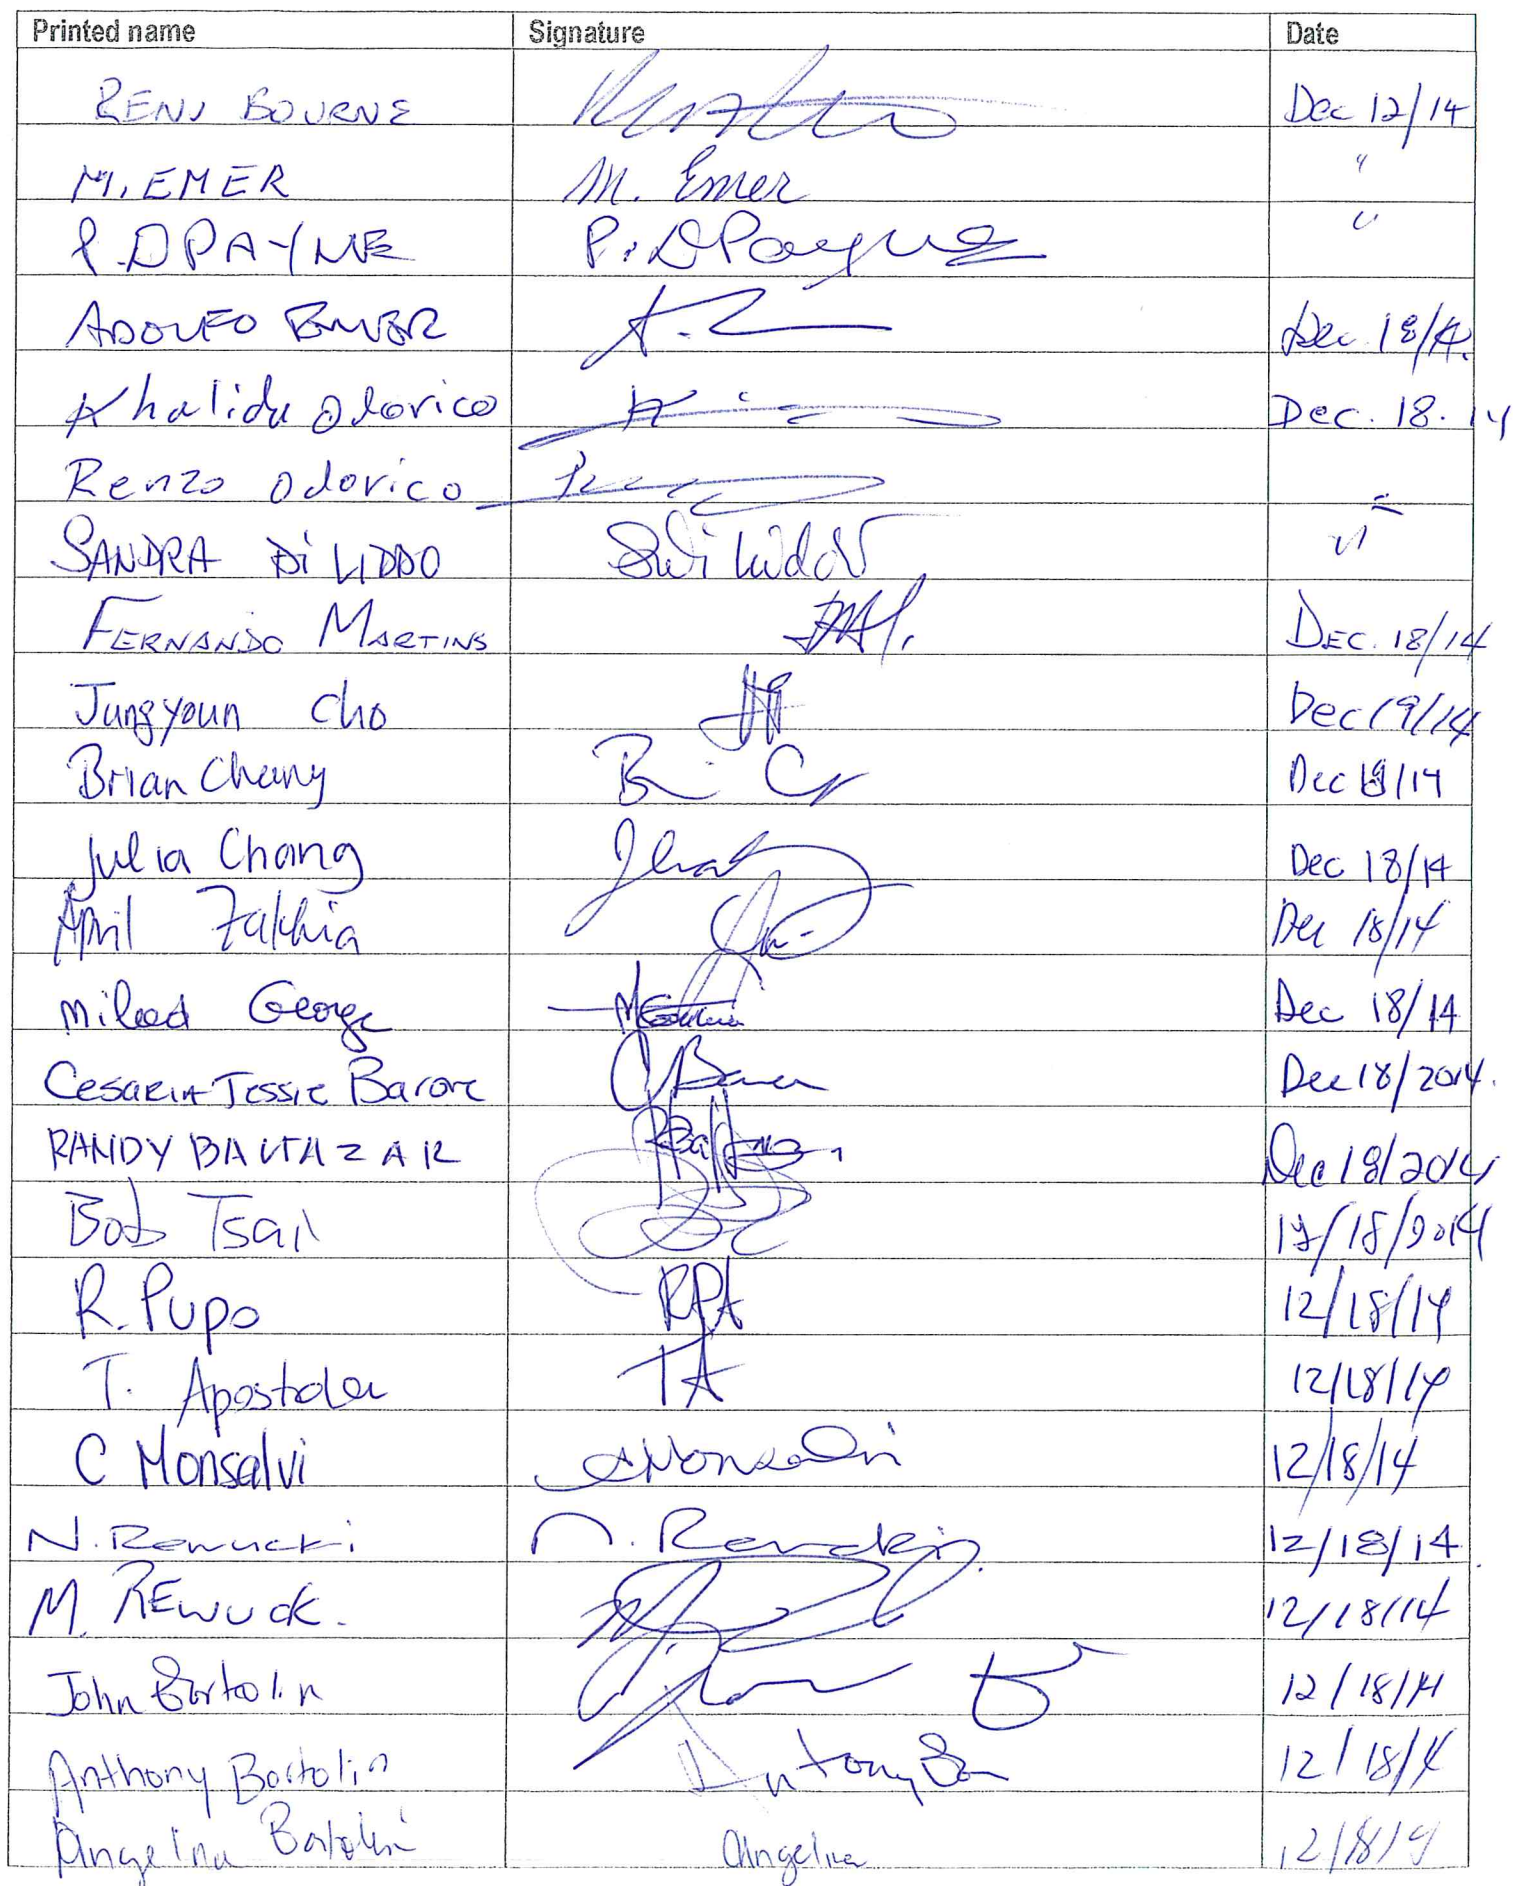 Printed name Signature Date
RENS BOURNE Dec 12/14
M. EMER M. Emer "
P.D PAYNE P.D Payne "
ADOLFO EMER A. Dec 18/14.
Khalida Odorico Dec. 18. 14
Renzo Odorico "
SANDRA Di LIDDO S Di Liddo "
FERNANDO MARTINS DEC. 18/14
Jungyoun Cho Dec 19/14
Brian Chung B C Dec 19/14
Julia Chang Dec 18/14
April Zakhia Dec 18/14
Milad George Dec 18/14
Cesaria Jessie Barone Dec 18/2014.
RANDY BALTAZAR Dec 18/2014
Bob Tsai 12/18/2014
R. Pupo RPA 12/18/14
T. Apostola TA 12/18/14
C Monsalvi C Monsalvi 12/18/14
N. Rewucki N. Rewucki 12/18/14
M. REWUCK. 12/18/14
John Bortolin 12/18/14
Anthony Bortolin Antony Bo 12/18/14
Angelina Bortolin Angelina 12/18/14